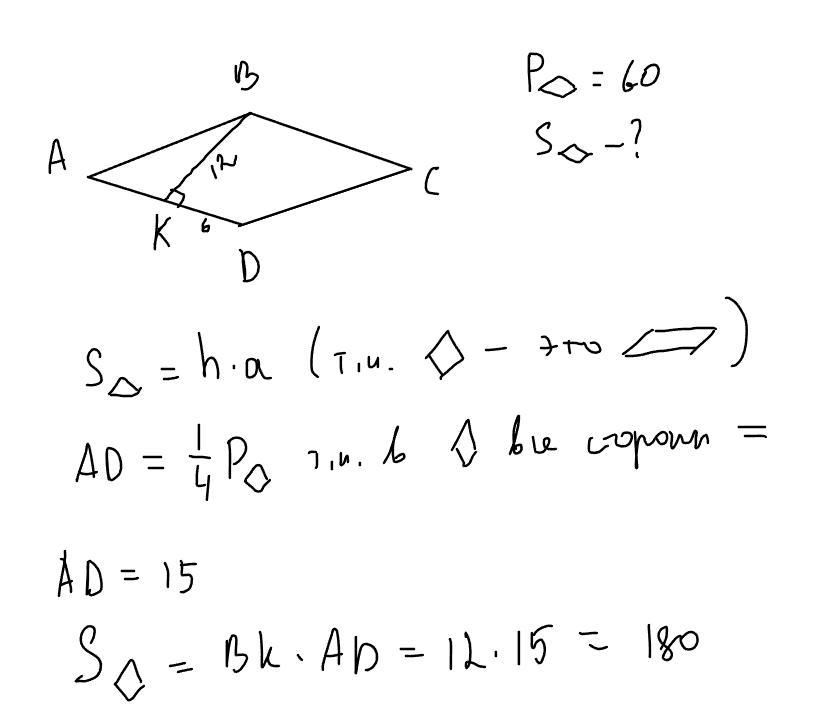 B
P◇ = 60
S◇ – ?
A
12
C
K
6
D
S◇ = h·a (т.к. ◇ – это ▱)
AD = 1/4 P◇ т.к. в ◇ все стороны =
AD = 15
S◇ = BK · AD = 12·15 = 180